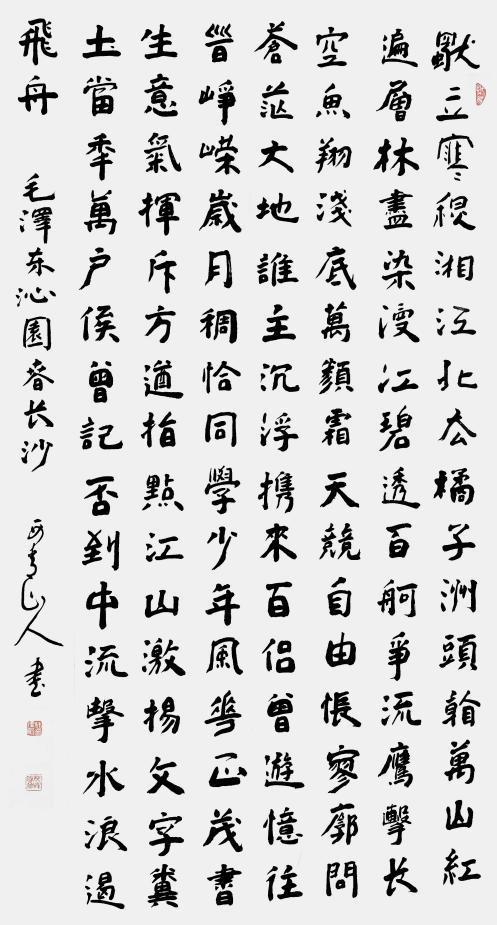 獨立寒穐湘江北去橘子洲頭看萬山紅
遍層林盡染漫江碧透百舸爭流鷹擊长
空魚翔淺底萬類霜天競自由悵寥廓問
蒼茫大地誰主沉浮携來百侣曾遊憶往
昔崢嶸歲月稠恰同學少年風華正茂書
生意氣揮斥方遒指點江山激揚文字糞
土當年萬户侯曾記否到中流擊水浪遏
飛舟
毛澤东沁園春长沙
青山人書